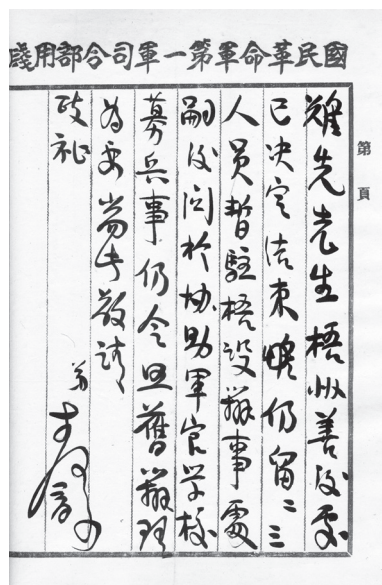 國民革命軍第一軍司令部用箋
第 頁
難先先生梧州善後處
已決定结束仍留二三
人員暫駐梧設辦事處
嗣後関於协助軍官学校
募兵事仍令照舊辦理
為要耑此敬請
政祉
弟